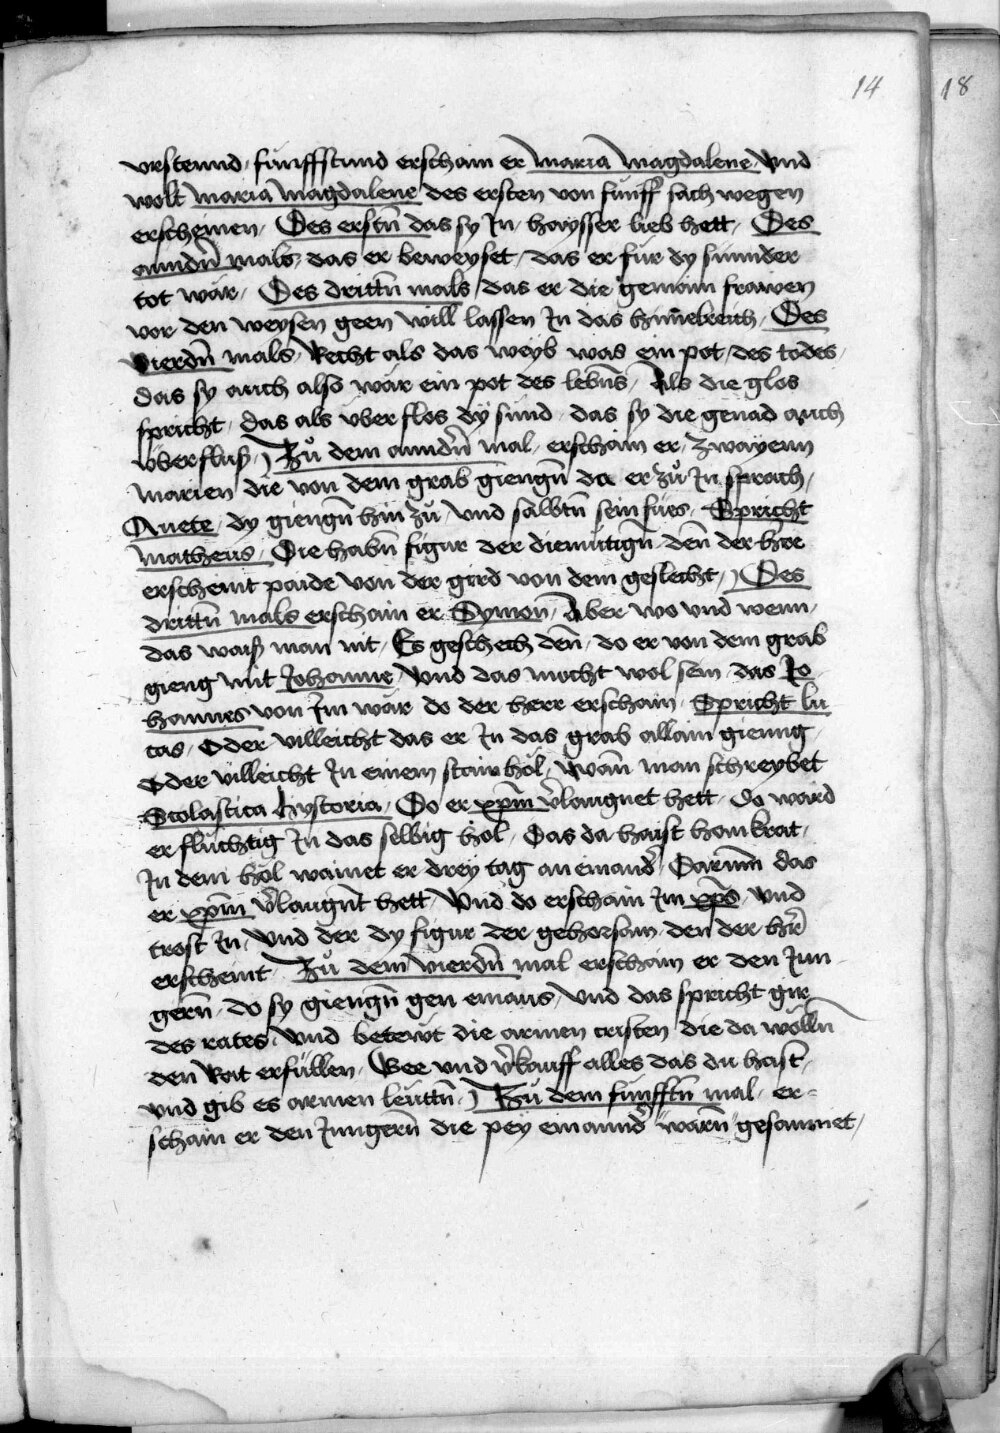 14
18
vrstennd / fünffstund erschain er maria magdalene / Vnd
wolt maria magdalene des ersten von fünff sach wegen
erscheinen / Des erstn̄ das sy Jn / haysser lieb hett / Des
anndn̄ mals / das er beweyset / das er für dy sünnder
tot wär / Des drittn̄ mals / das er die gemain frawen
vor den weysen geen will lassen Jn das himelreich / Des
Vierdn̄ mals / Recht als das weyb was ein pot / des todes /
das sy auch also wär ein pot des lebn̄s / Als die glos
spricht / das als vberflos dy sünd / das sy die genad auch
vberfluß / Zů dem anndn̄ mal / erschain er / zwayenn
marien die von dem grab giengn̄ da er zů Jn sprach /
Auete / dy giengn̄ hin zů / vnd salbtn̄ sein fües / Spricht
matheus / Die habn̄ figur der diemütign̄ / den̄ der her̄
erscheint paide von der gird von dem geslecht / Des
drittn̄ mals erschain er Symon̄ / Aber wo vnd wenn /
das waiß man nit / Es geschech den̄ / do er von dem grab
gieng mit Johanne / Vnd das mocht wol sein / das Jo
hannes von Jm wär do der herr erschain / Spricht lu
cas / Oder villeicht das er Jn das grab allain gienng /
Oder villeicht Jn einem stain hol / wan̄ man schreybet
Scolastica hystoria / Do er xp̄m v̄laugnet hett / do ward
er flüchtig Jn das selbig hol / Das da haist hankrat /
Jn dem höl wainet er drey tag an einand̄ / Darum̄ das
er xp̄m v̄laugn̄t hett / Vnd do erschain Jm xp̄s / vnd
trost Jn / Vnd der dy figur der gehorsam / den der her̄
erscheint / Zů dem vierdn̄ mal erschain er den Jun
gern̄ / do sy giengn̄ gen emaus / Vnd das spricht gur
des rates / Vnd betewt die armen cristen die da wölln̄
den Rat erfüllen / Gee vnd v̄kauff alles das du hast /
vnd gib es armen leüttn̄ / Zů dem fünfftn̄ mal / er=
schain er den Jungern̄ die pey einannd̄ warn̄ gesammet /